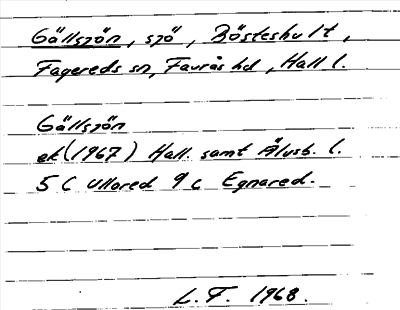 Gällsjön, sjö, Bösteshult,
Fagereds sn, Faurås hd, Hall l.
Gällsjön
ek (1967) Hall. samt Älvsb. l.
5 C Ullared 9 c Egnared.
L.F. 1968.